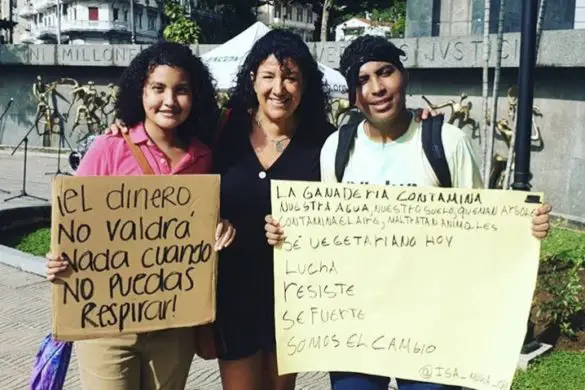 NI MILLONE
JUSTICI
¡EL DINERO,
NO VALDRÁ
NADA CUANDO
NO PUEDAS
RESPIRAR!
LA GANADERIA CONTAMINA
NUESTRA AGUA, NUESTRO SUELO, QUEMAN ARBOLES
CONTAMINA EL AIRE, MALTRATAN ANIMALES
SÉ VEGETARIANO HOY
LUCHA
RESISTE
SE FUERTE
SOMOS EL CAMBIO